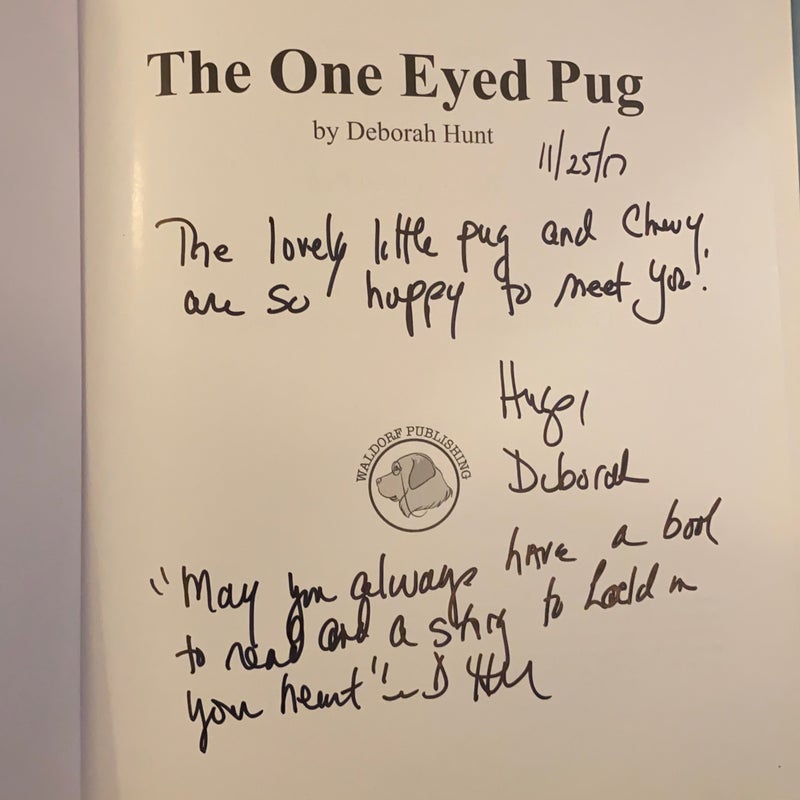 The One Eyed Pug
by Deborah Hunt
11/25/17
The lovely little pug and Chewy
are so happy to meet you!
Hugs,
Deborah
WALDORF PUBLISHING
"May you always have a book
to read and a story to hold in
your heart" – D Hunt